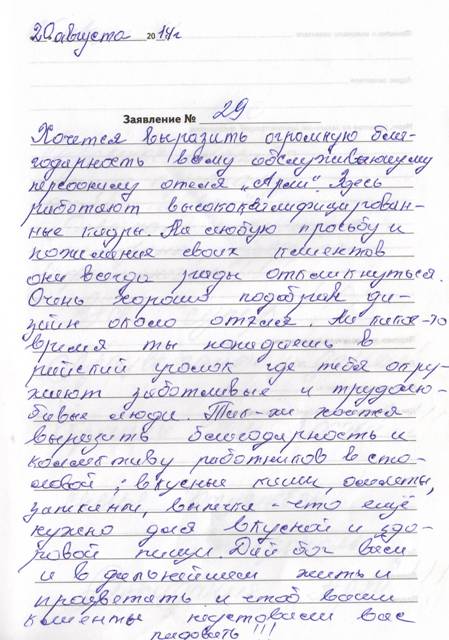 20 августа 2014г
Заявление № 29
Хочется выразить огромную благ-
одарность всему обслуживающему
персоналу отеля "Арли". Здесь
работают высококвалифицирован-
ные кадры. На любую просьбу и
пожелания своих клиентов
они всегда рады откликнуться.
Очень хорошо подобран ди-
зайн около отеля. На какое-то
время ты попадаешь в
райский уголок где тебя окру-
жают заботливые и трудолю-
бивые люди. Так-же хочется
выразить благодарность и
коллективу работников в сто-
ловой; вкусные каши, омлеты,
запеканки, выпечка - что ещё
нужно для вкусной и здо-
ровой пищи. Дай бог вам
и в дальнейшем жить и
процветать и чтоб ваши
клиенты продолжали вас
радовать!!!